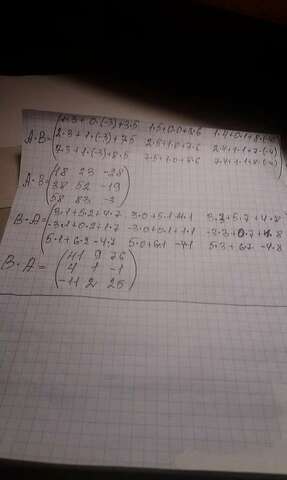 1·3+0·(-3)+3·5 1·5+0·0+3·6 1·4+0·1+8·(-4)
A·B= 2·3+1·(-3)+7·5 2·5+1·0+7·6 2·4+1·1+7·(-4)
7·3+1·(-3)+8·5 7·5+1·0+8·6 7·4+1·1+8·(-4)
18 23 -28
A·B= 38 52 -19
58 83 -3
3·1+5·2+4·7 3·0+5·1+4·1 3·3+5·7+4·8
B·A= -3·1+0·2+1·7 -3·0+0·1+1·1 -3·3+0·7+1·8
5·1+6·2-4·7 5·0+6·1-4·1 5·3+6·7-4·8
41 9 76
B·A= 4 1 -1
-11 2 25